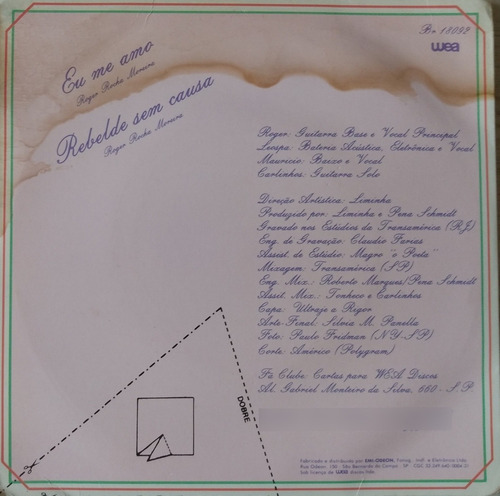 Br 18092
wea
Eu me amo
Roger Rocha Moreira
Rebelde sem causa
Roger Rocha Moreira
Roger: Guitarra Base e Vocal Principal
Leospa: Bateria Acústica, Eletrônica e Vocal
Mauricio: Baixo e Vocal
Carlinhos: Guitarra Solo
Direção Artística: Liminha
Produzido por: Liminha e Pena Schmidt
Gravado nos Estúdios da Transamérica (RJ)
Eng. de Gravação: Claudio Farias
Assist. de Estúdio: Magro "o Poeta"
Mixagem: Transamérica (SP)
Eng. Mix.: Roberto Marques/Pena Schmidt
Assist. Mix.: Tonheco e Carlinhos
Capa: Ultraje a Rigor
Arte Final: Silvia M. Panella
Foto: Paulo Fredman (NY-SP)
Corte: Américo (Polygram)
Fã Clube: Cartas para WEA Discos
Al. Gabriel Monteiro da Silva, 660 - S.P.
DOBRE
Fabricado e distribuído por EMI-ODEON, Fonog. Indl. e Eletrônica Ltda.
Rua Odeon, 150 - São Bernardo do Campo - SP - CGC
Sob licença de WEA Discos Ltda.